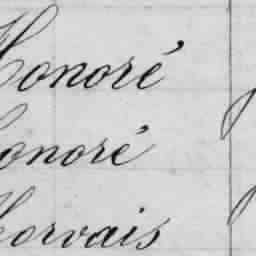 Honoré
Honoré
Horvais